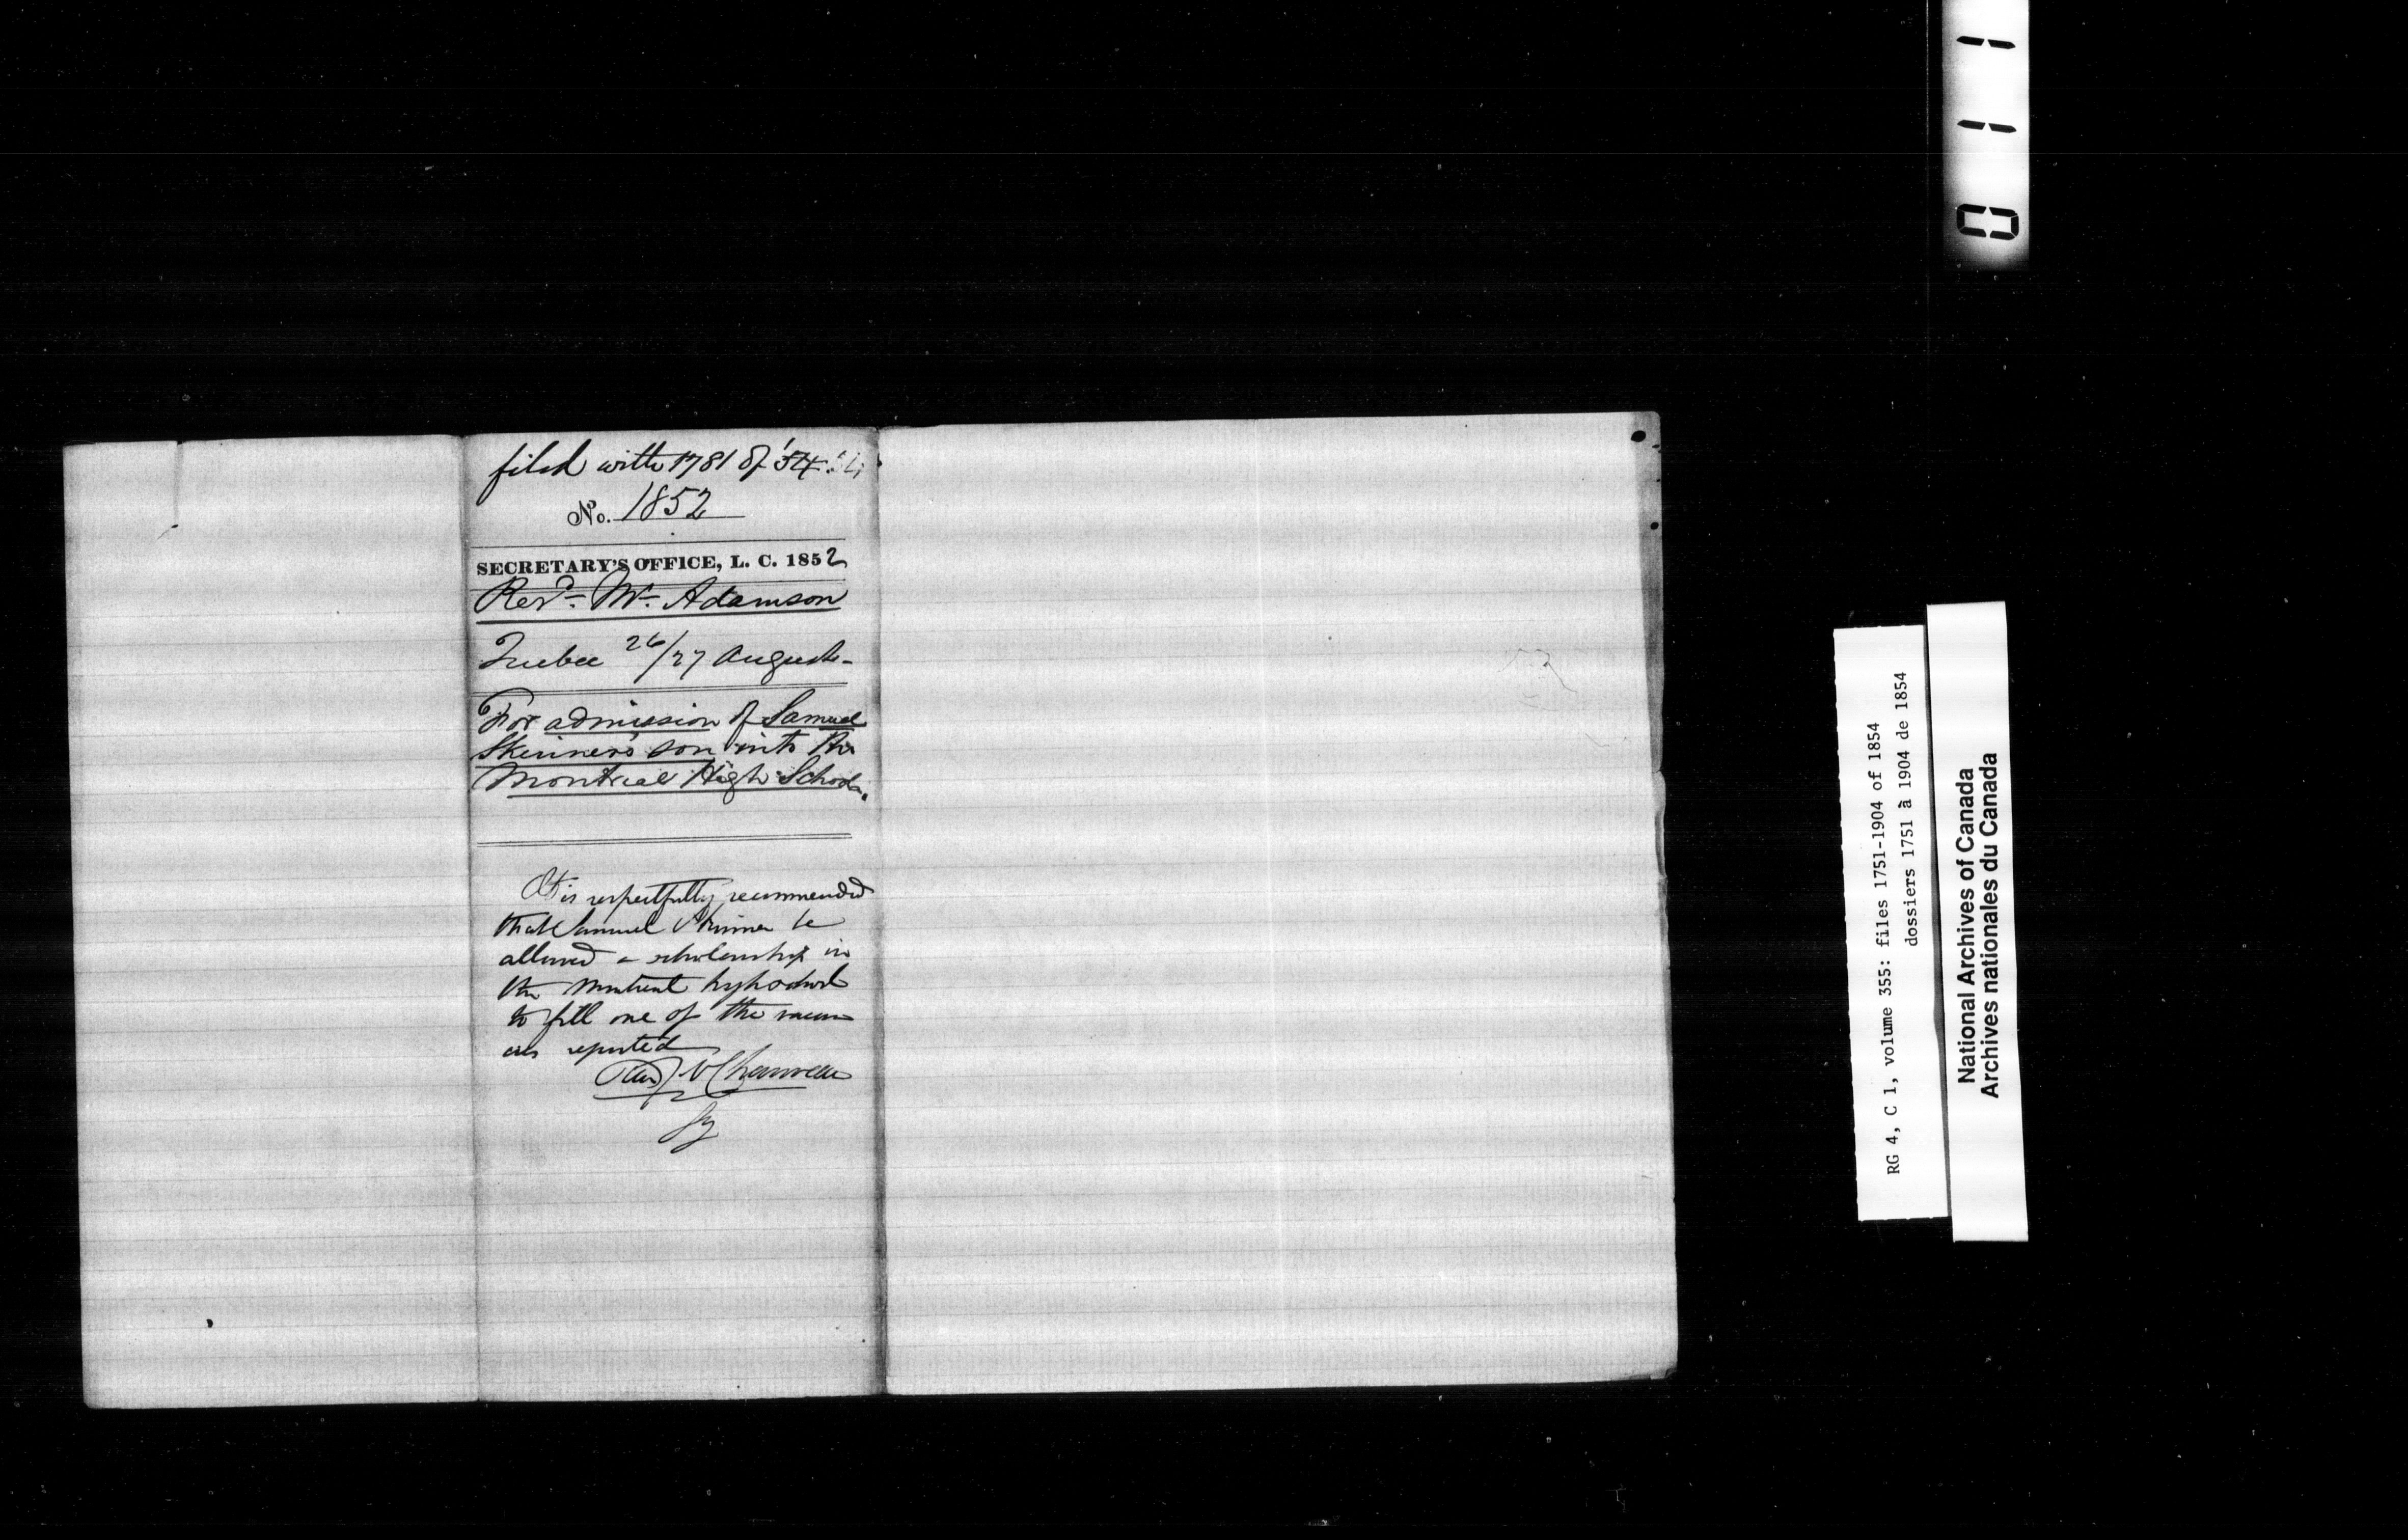 filed with 1781 of '54.
No. 1852
SECRETARY'S OFFICE, L. C. 1852
Revd. Mr. Adamson
Quebec 26/27 August
For admission of Samuel
Skinner's son into the
Montreal High School.
It is respectfully recommended
that Samuel Skinner be
allowed a scholarship in
the Montreal high school
to fill one of the vacan
cies reported
Chauveau
Sy
0 1 1
RG 4, C 1, volume 355: files 1751-1904 of 1854
dossiers 1751 à 1904 de 1854
National Archives of Canada
Archives nationales du Canada